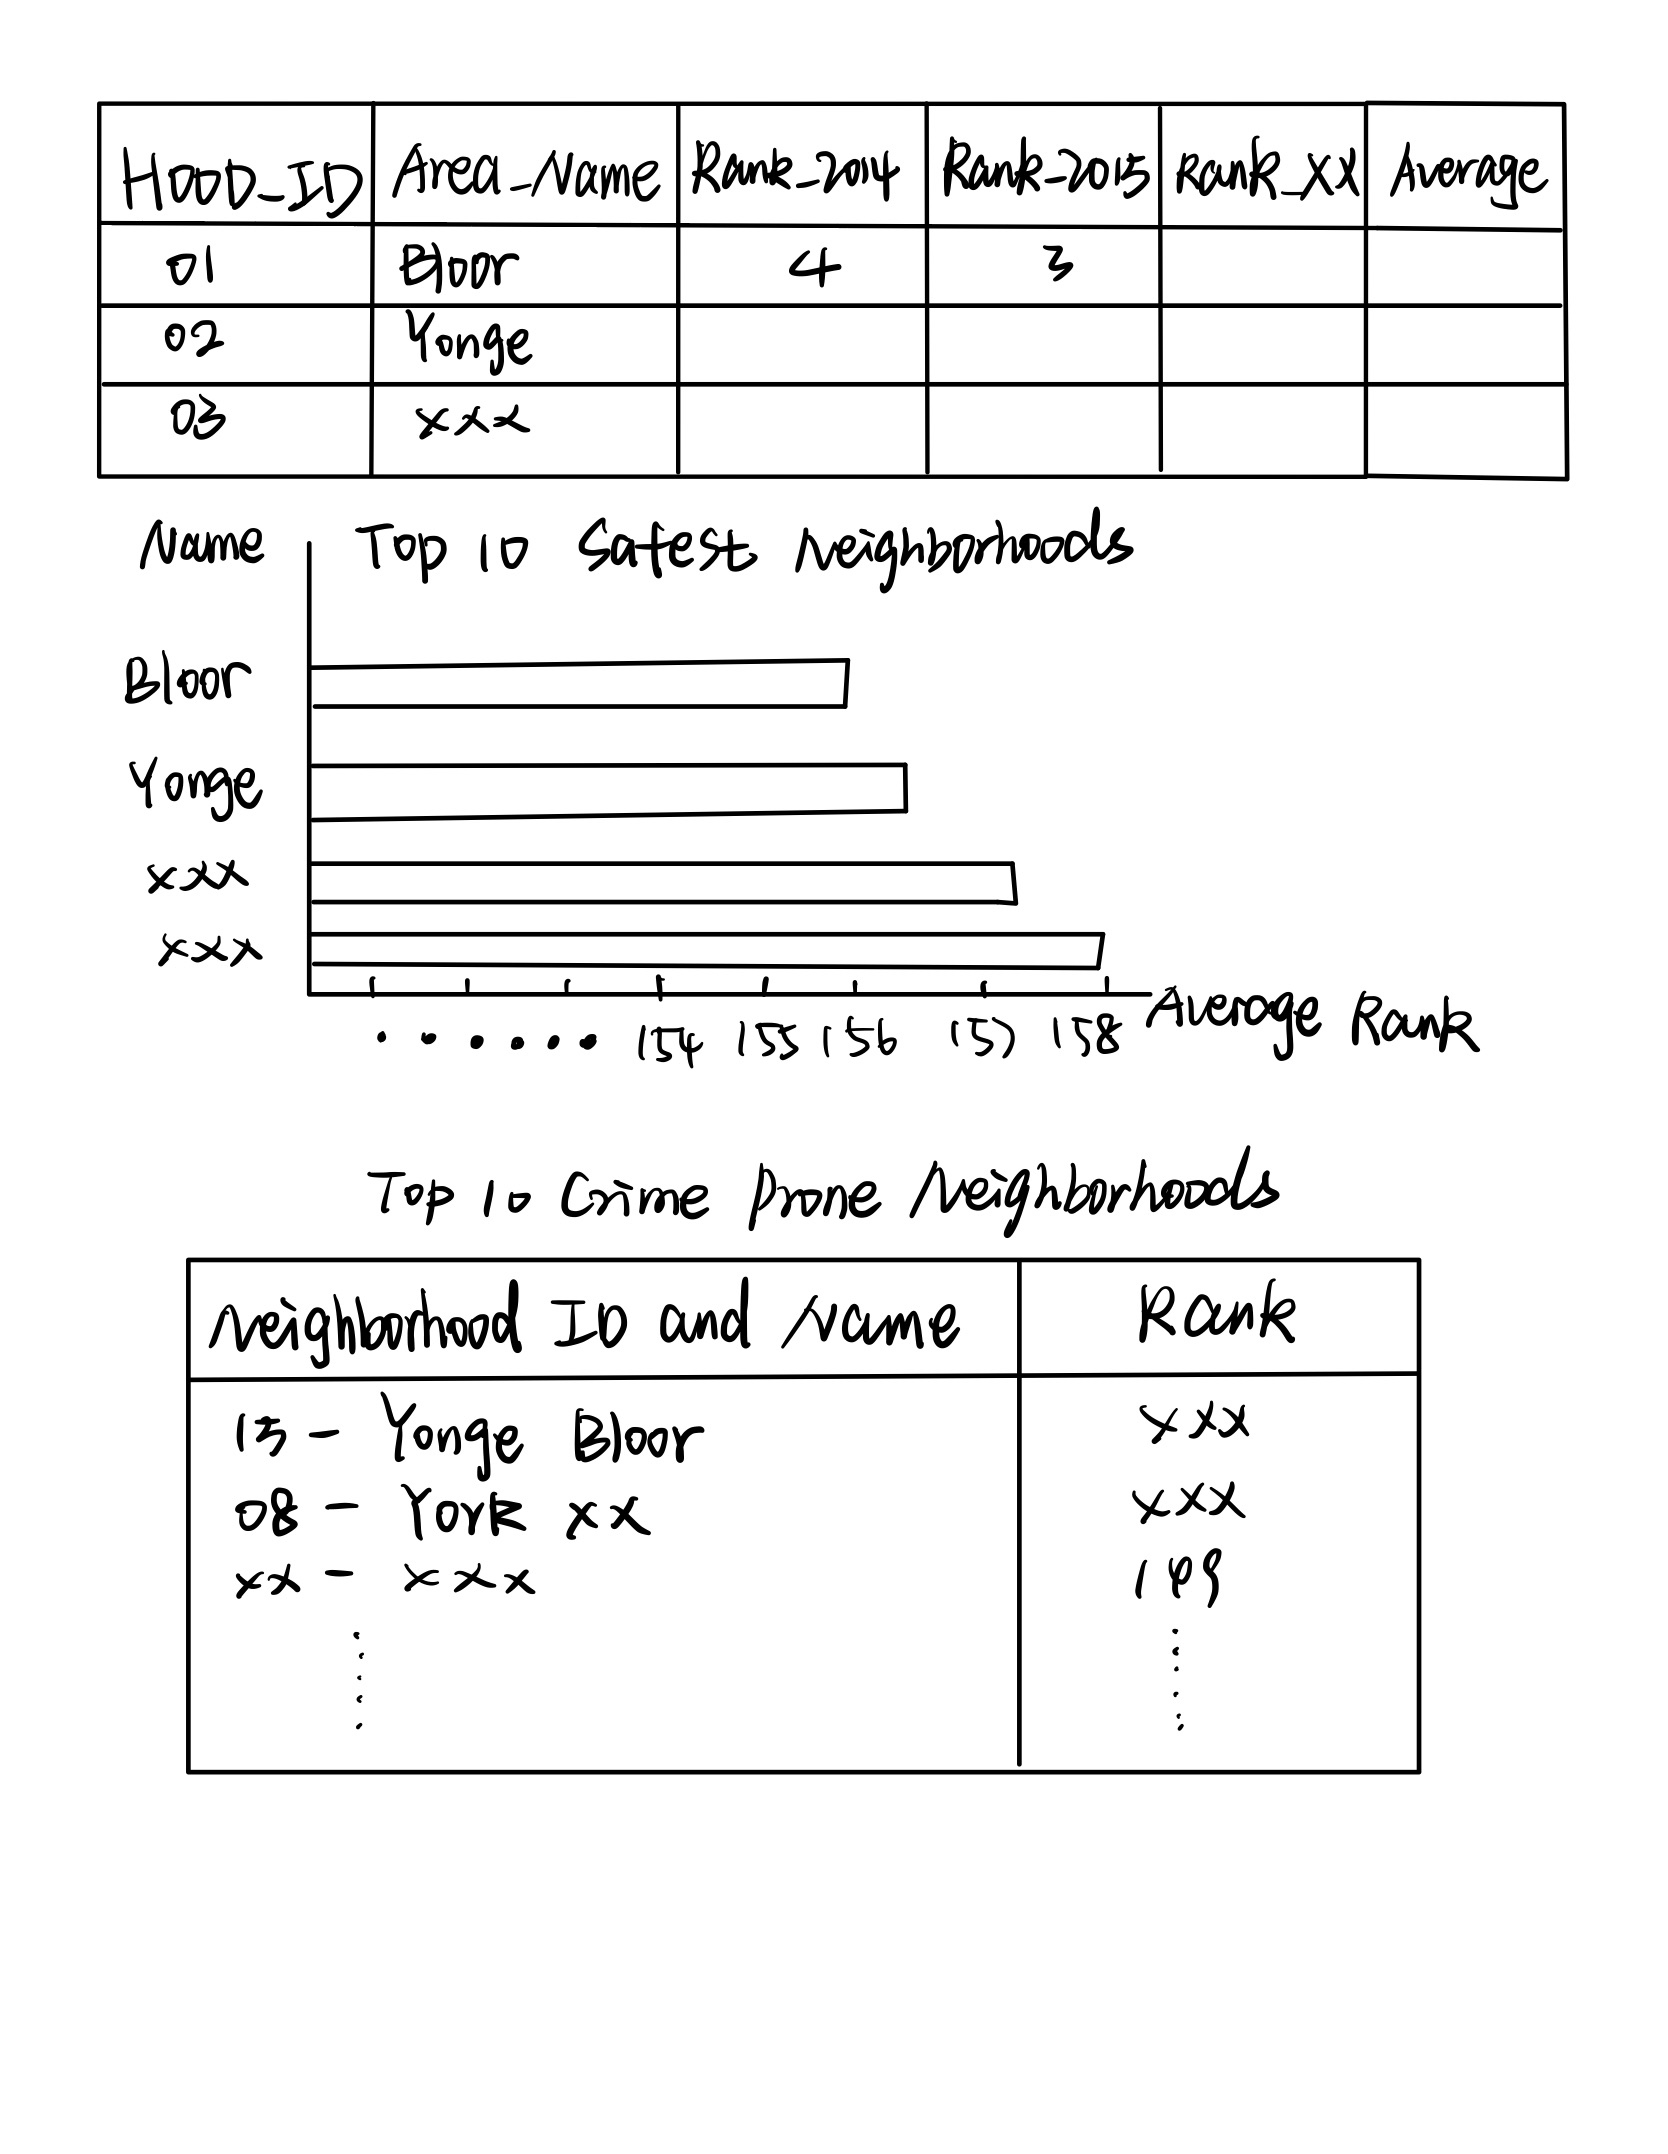 HOOD_ID Area_Name Rank_2014 Rank_2015 Rank_XX Average
01 Bloor 4 3
02 Yonge
03 xxx
Name Top 10 Safest Neighborhoods
Bloor
Yonge
xxx
xxx
154 155 156 157 158 Average Rank
Top 10 Crime Prone Neighborhoods
Neighborhood ID and Name Rank
13 - Yonge Bloor xxx
08 - York xx xxx
xx - xxx 149